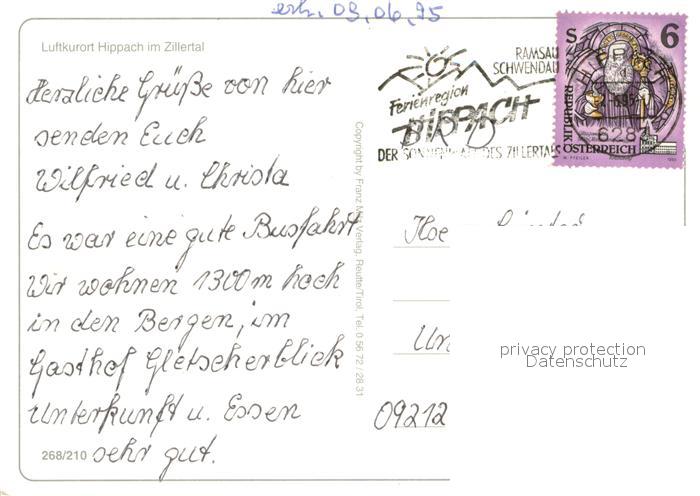 erh. 09.06.95
Luftkurort Hippach im Zillertal
Herzliche Grüße von hier
senden Euch
Wilfried u. Christa
Es war eine gute Busfahrt
Wir wohnen 1300m hoch
in den Bergen, im
Gasthof Gletscherblick
Unterkunft u. Essen
sehr gut.
268/210
Copyright by Franz Verlag, Reutte/Tirol, Tel. 0 56 72 / 28 31
RAMSAU
SCHWENDAU
Ferienregion
HIPPACH
DER DES ZILLERTALS
S 6
REPUBLIK
ÖSTERREICH
6283
09212
privacy protection
Datenschutz